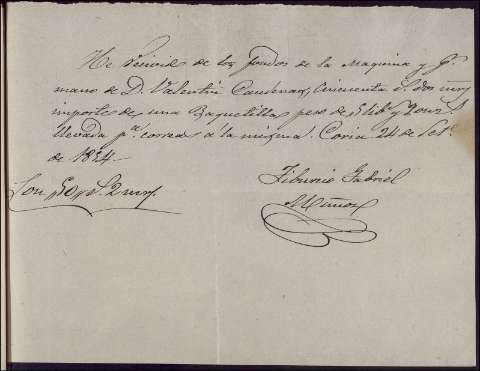 He recivido de los fondos de la Maquina y p.r
mano de D. Valentin Cardenas, cincuenta r.s dos mrs
importe de una Baquetilla peso de lib y onz.s
llevada p.a correas a la misma. Coria 24 de Set.e
de 1854
Son 50 r.s 2 mrs.
Tiburcio Gabriel
Muñoz